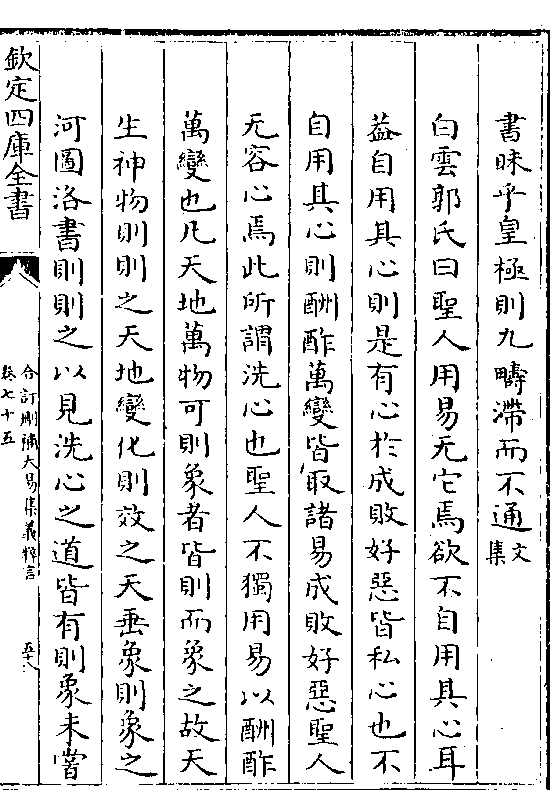 書昧乎皇極則九疇滯而不通文集
白雲郭氏曰聖人用易无它焉欲不自用其心耳
葢自用其心則是有心於成敗好惡皆私心也不
自用其心則酬酢萬變皆取諸易成敗好惡聖人
无容心焉此所謂洗心也聖人不獨用易以酬酢
萬變也凡天地萬物可則象者皆則而象之故天
生神物則則之天地變化則效之天垂象則象之
河圖洛書則則之以見洗心之道皆有則象未嘗
欽定四庫全書
合訂刪補大易集義粹言
卷七十五
五十八